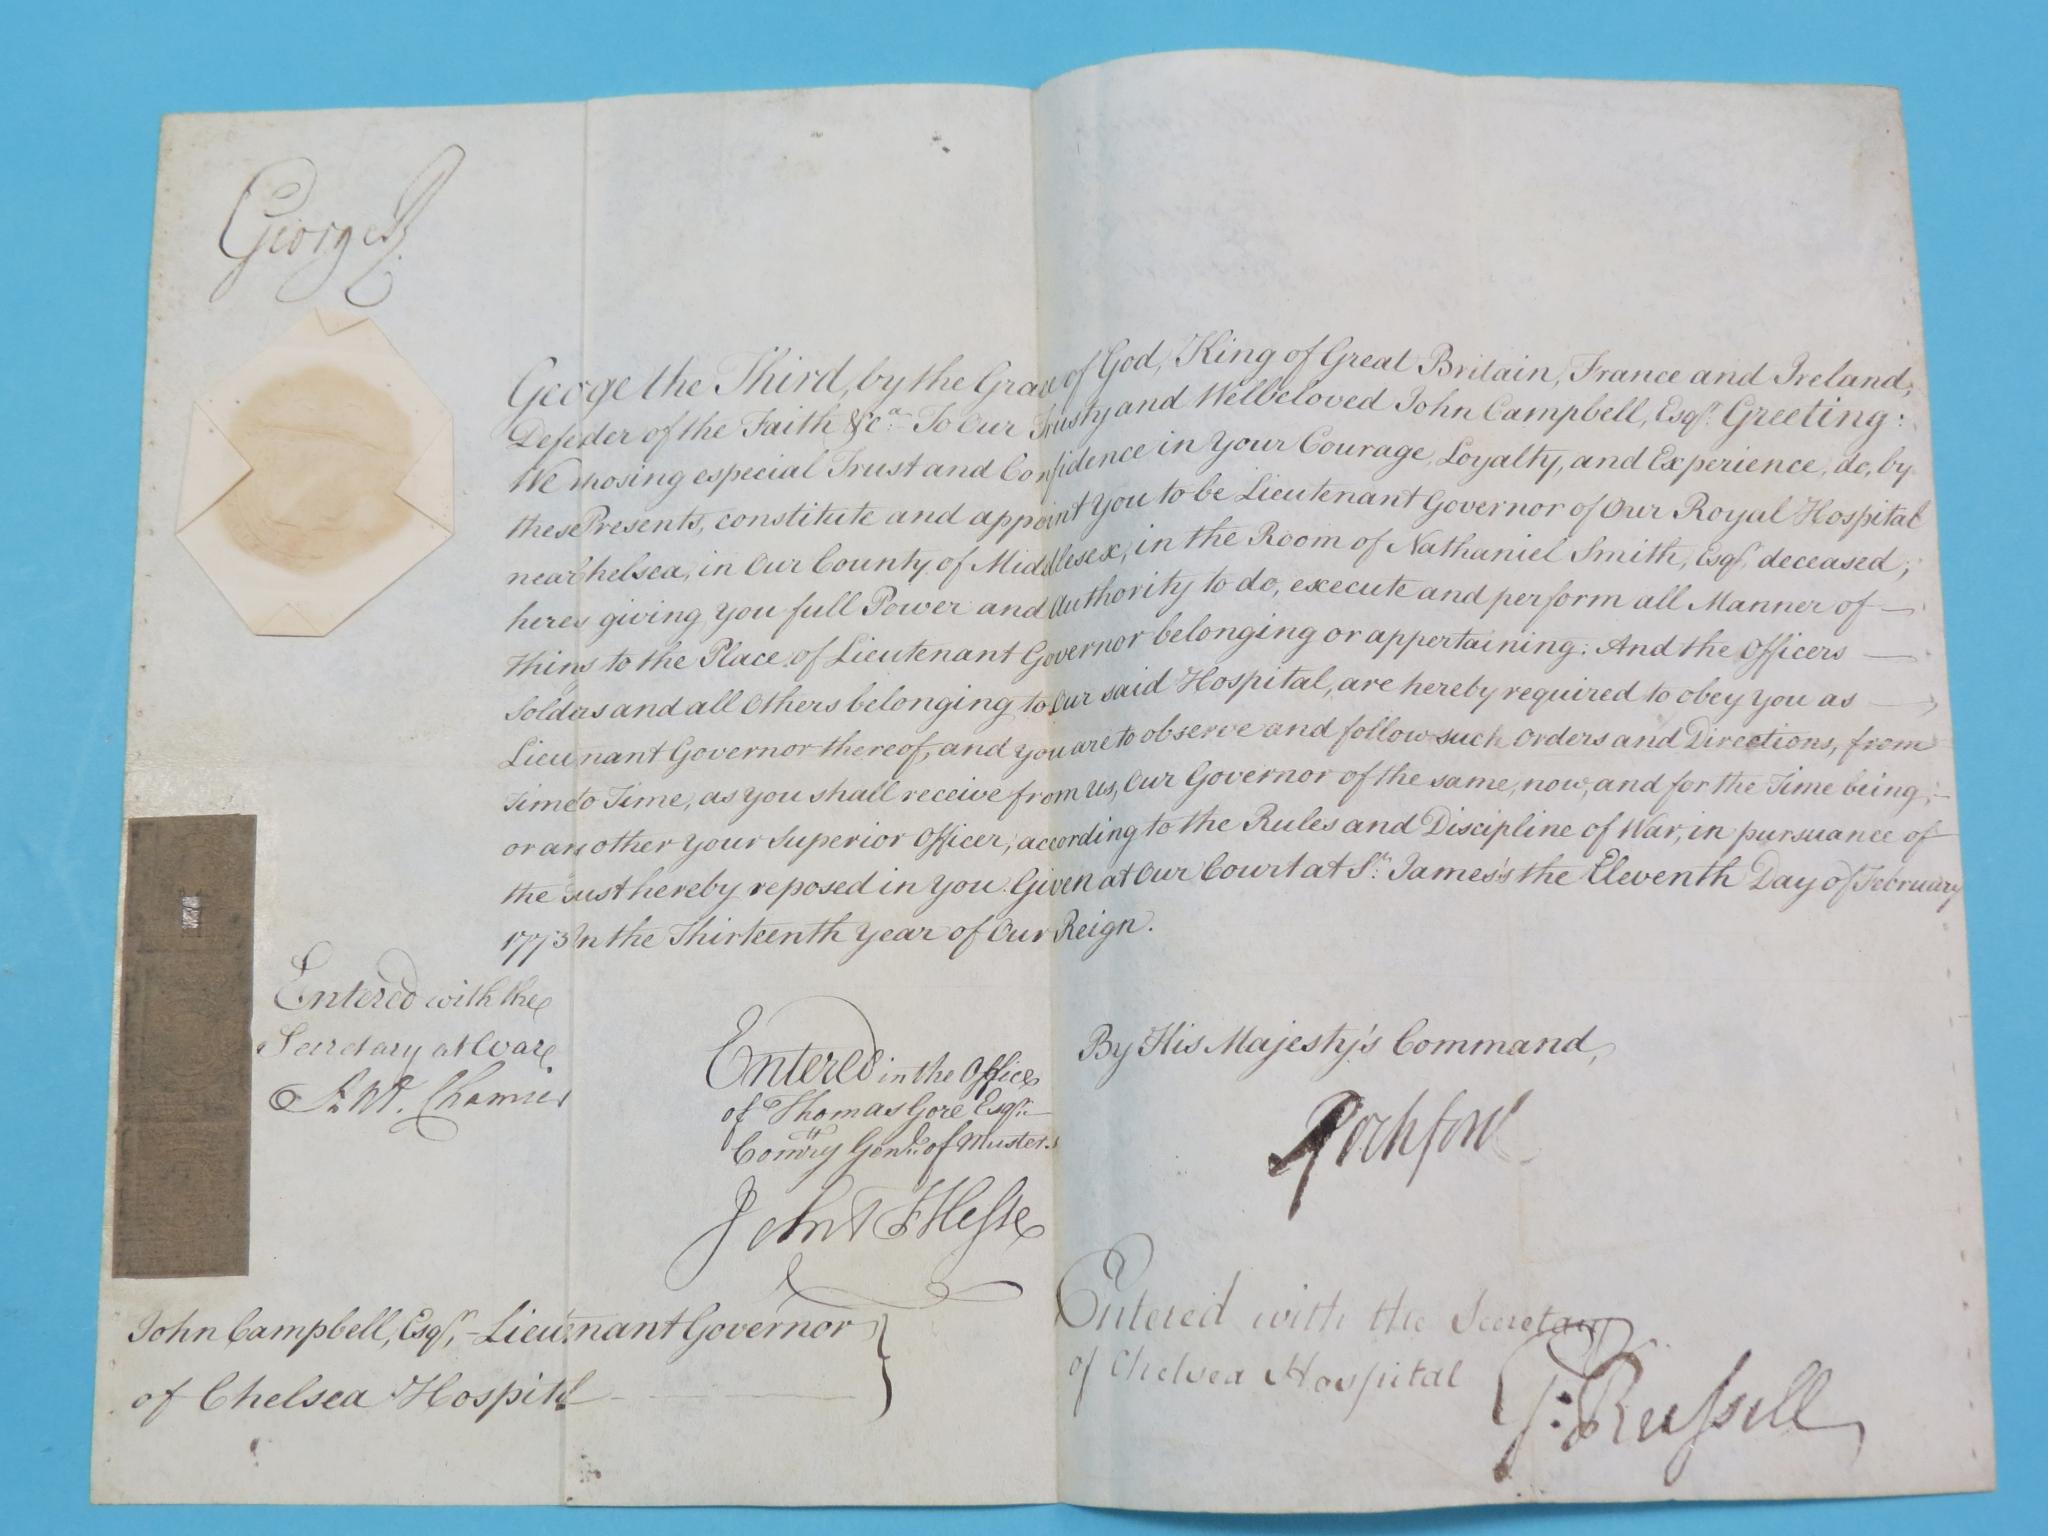 George R.
George the Third, by the Grace of God, King of Great Britain, France and Ireland,
Defeder of the Faith &c.a To Our Trusty and Welbeloved John Campbell, Esqr. Greeting:
We reposing especial Trust and Confidence in Your Courage, Loyalty, and Experience, do, by
these Presents, constitute and appoint You to be Lieutenant Governor of Our Royal Hospital
near Chelsea, in Our County of Middlesex, in the Room of Nathaniel Smith, Esqr. deceased;
giving You full Power and Authority to do, execute and perform all Manner of
Things to the Place of Lieutenant Governor belonging or appertaining: And the Officers
Soldiers and all Others belonging to Our said Hospital, are hereby required to obey You as
Lieutenant Governor thereof, and You are to observe and follow such Orders and Directions, from
Time to Time, as You shall receive from Us, Our Governor of the same, now, and for the Time being,
or another Your Superior Officer, according to the Rules and Discipline of War, in pursuance of
the Trust hereby reposed in You. Given at Our Court at St. James's the Eleventh Day of February
1773 In the Thirteenth Year of Our Reign.
By His Majesty's Command,
Rochford
Entered with the
Secretary at War
Ant. Chamier
Entered in the Office
of Thomas Gore Esqr.
Comry. Genl. of Musters
John F Hesse
John Campbell, Esqr. Lieutenant Governor
of Chelsea Hospital
Entered with the Secretary
of Chelsea Hospital
Russell